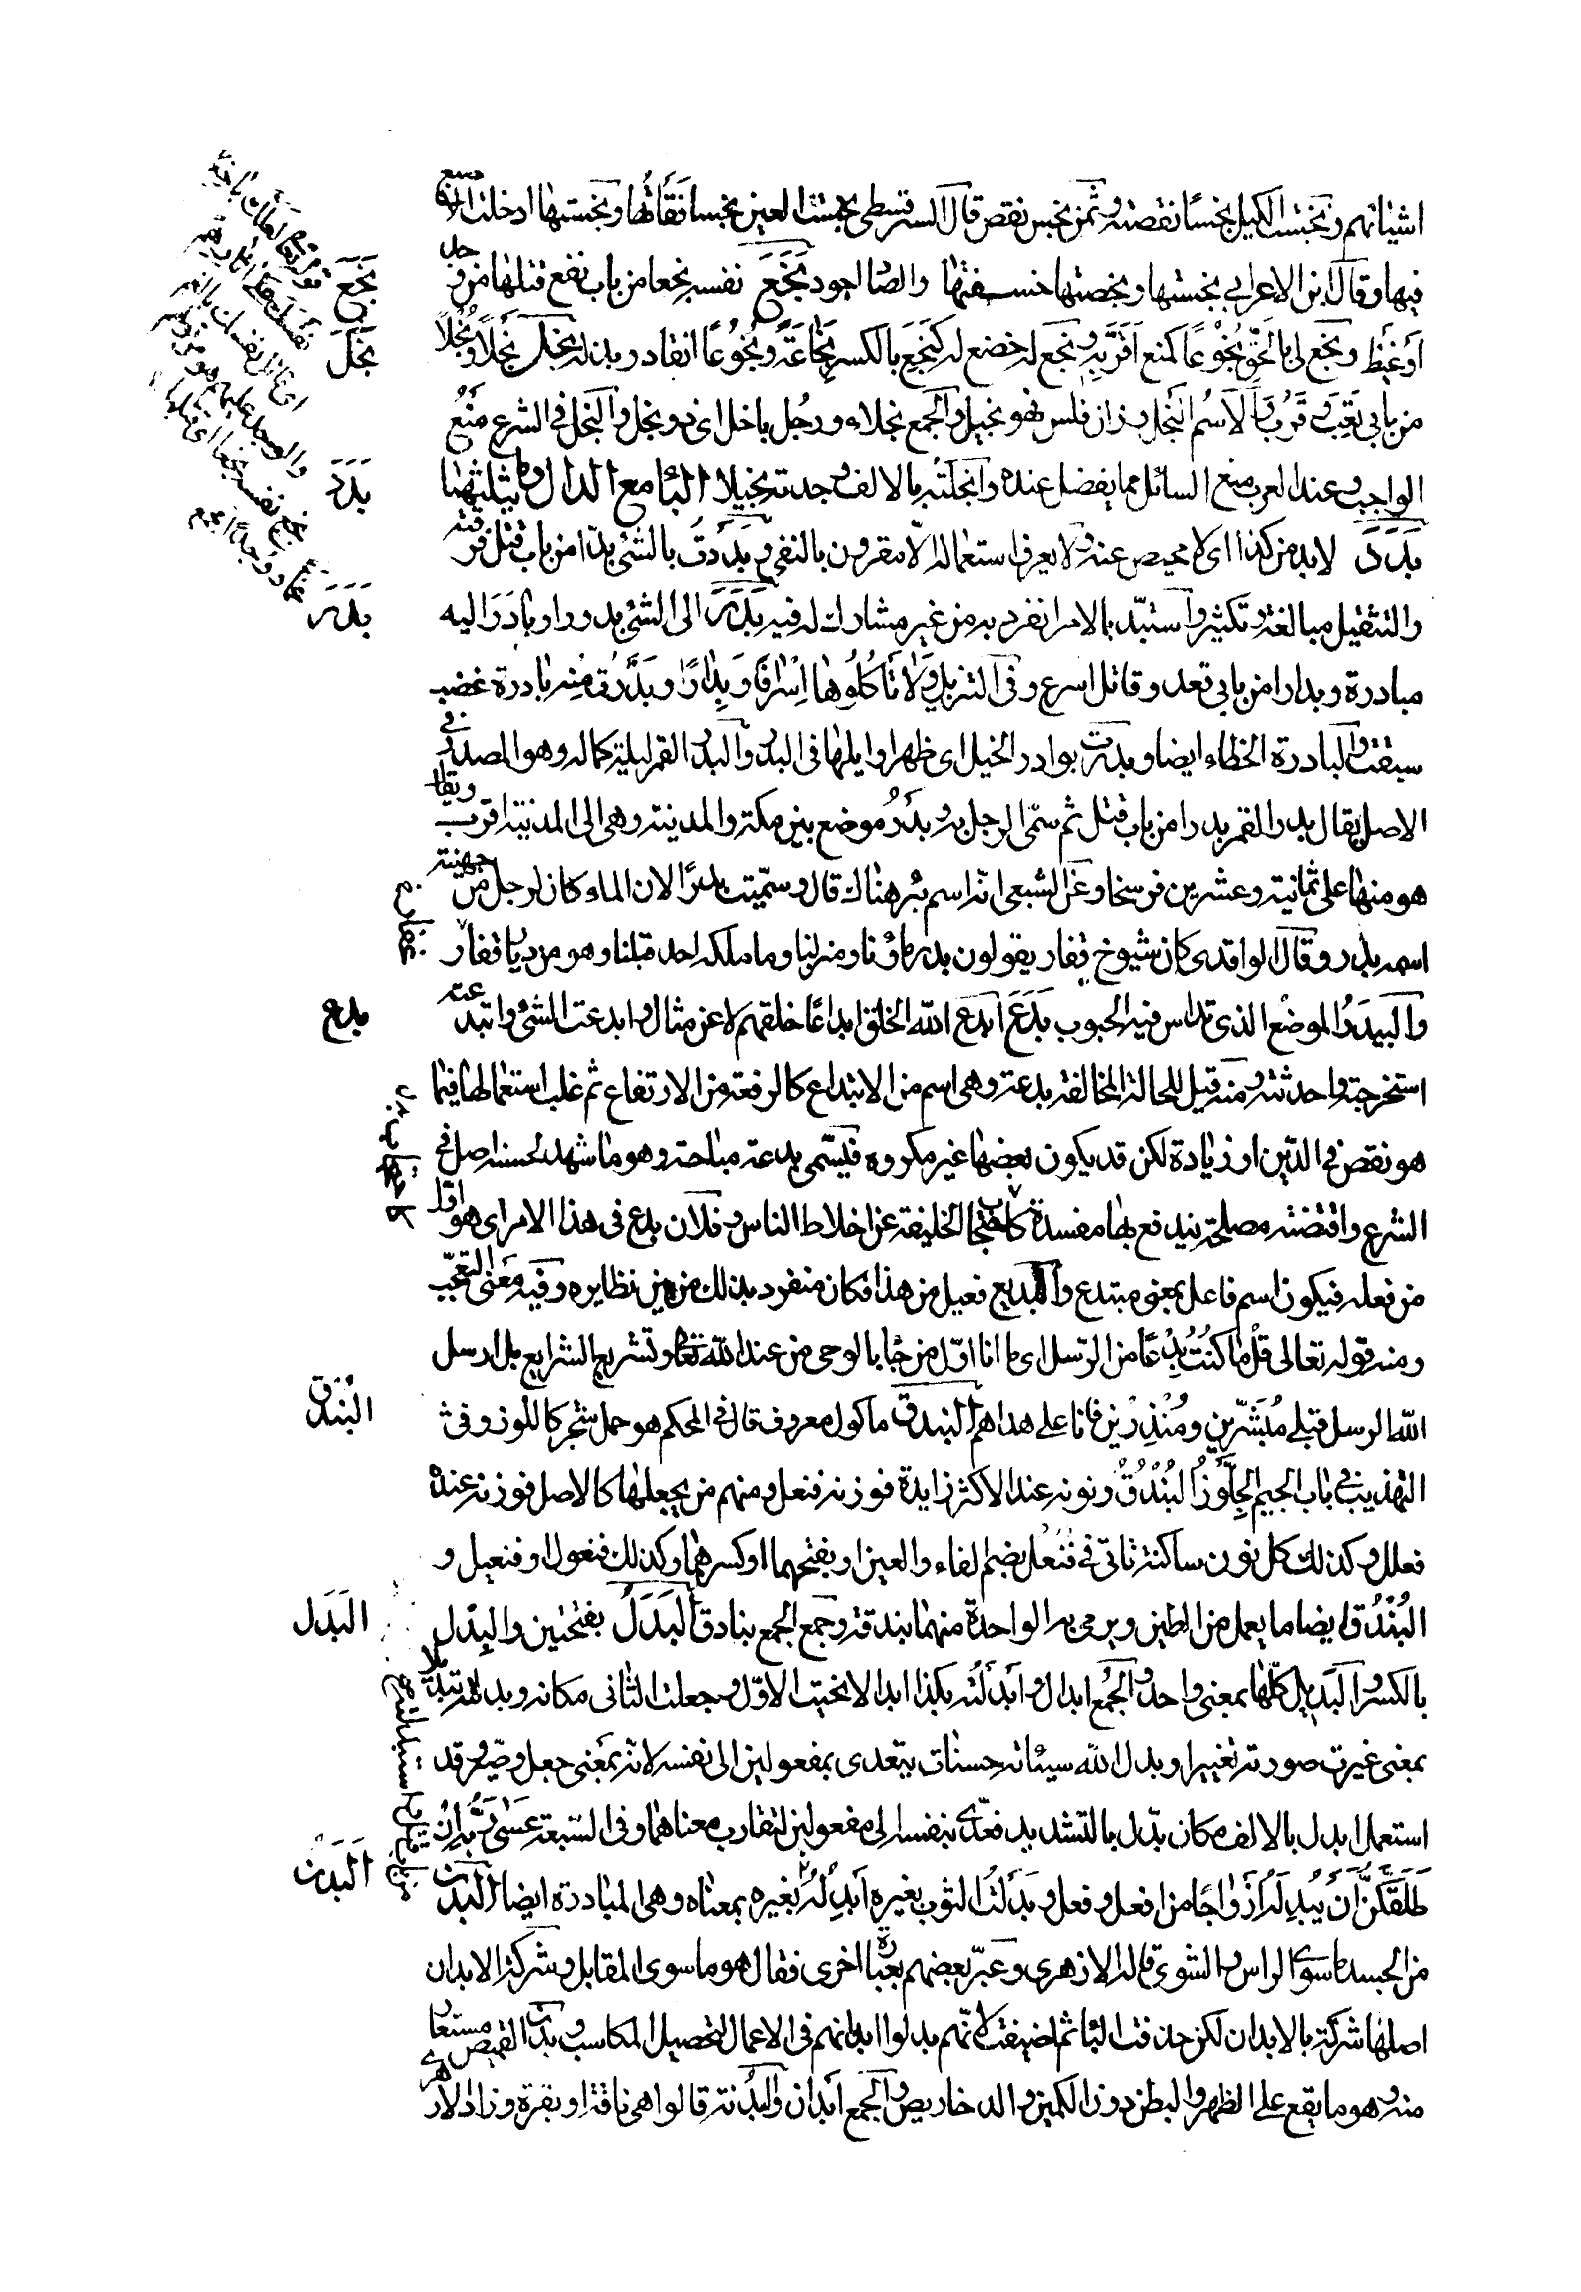 اشياءهم وبخست الكيل بخسا نقصته وثمن بخس نقص قال السرقسطي بخست العين بخسا نقأتها وبخستها ادخلت الاصبع
فيها وقال ابن الاعرابي بخستها وبخصتها خسفتها والصاد اجود بَخَعَ نفسه بخعا من باب نفع قتلها من وجد
أو غيظ وبخع لي بالحق بُخُوعًا كمنع اَقَرَّ بِه وبخع له خضع له كبَخِعَ بالكسر بَخَاعَةً وبُخُوعًا انقاد وبذله بخل بَخَلًا وبُخْلًا
من بابي تَعِبَ وقَرُبَ والاسم البَخْل وزان فلس فهو بخيل والجمع بخلاء ورجل باخل اى ذو بخل والبخل في الشرع مَنْعُ
الواجب وعند العرب منع السائل مما يفضل عنده وابخلته بالالف وجدته بخيلا البا مع الدال وما يثلثهما
بَدَدَ لابد من كذا اى لا محيص عنه ولا يعرف استعماله الا مقرون بالنفي وبَدَدتُ بالشئ بدا من باب قتل فرقته
والتثقيل مبالغة وتكثير واستبدّ بالامر انفرد به من غير مشارك له فيه بَدَرَ الى الشئ بدورا وبادَرَ اليه
مبادرة وبدارا من بابي قعد وقاتل اسرع وفي التنزيل وَلا تَأكُلُوها اِسْرافًا وَبِدارًا وبَدَرَت منه بادرة غضب
سبقت والبادرة الخطاء ايضا وبدرت بوادر الخيل اى ظهر اوايلها في البدر والبدر القمر ليلة كماله وهو المصدر في
الاصل يقال بدر القمر بدرا من باب قتل ثم سمّى الرجل به وبَدْرُ موضع بين مكة والمدينة وهى الى المدينة اقرب ويقال
هو منها على ثمانية وعشرين فرسخا وعن الشعبى انه اسم بئر هناك قال وسمّيت بدرًا لان الماء كان لرجل من جهينة
اسمه بدر وقال الواقدى كان شيوخ غفار يقولون بدر ماؤنا ومنزلنا وما ملكه احد قبلنا وهو من ديار غفار
والبيدر الموضع الذى تداس فيه الحبوب بَدَعَ اَبدع الله الخلق ابداعًا خلقهم لا عن مثال وابدعت الشئ وابتدعته
استخرجته واحدثته ومنه قيل للحالة المخالفة بدعة وهى اسم من الابتداع كالرفعة من الارتفاع ثم غلب استعمالها فيما
هو نقص في الدّين او زيادة لكن قد يكون بعضها غير مكروه فيسّمى بدعة مباحة وهو ما شهد لحسنه اصل في
الشرع واقتضته مصلحة يندفع بها مفسدة كاحتجاب الخليفة عن اخلاط الناس وفلان بدع في هذا الامر اى هو اول
من فعله فيكون اسم فاعل بمعنى مبتدع والبديع فعيل من هذا فكان منفرد بذلك من بين نظايره وفيه معنى التعجّب
ومنه قوله تعالى قُلْ مٰا كُنْتُ بِدْعًا من الرّسل اى ما انا اوّل من جٰا بالوحى من عند الله تعالى وتشريع الشرايع بل ارسل
الله الرسل قبلى مُبَشِّرِين ومُنْذِرْين فانا على هداهم البندق ماكول معروف قال في المحكم هو حمل شجر كاللوز وفى
التهذيب في باب الجيم الجِلَّوْزُ البُنْدُقُ ونونه عند الاكثر زايدة فوزنه فنعل ومنهم من يجعلها كالاصل فوزنه عنده
فعلل وكذلك كل نون ساكنة تاتى في فُنْعُل بضم الفاء والعين او بفتحهما او كسرهما وكذلك فنعول او فنعيل و
البُنْدُق ايضا ما يعمل من الطين ويرمى به الواحدة منهما بندقة وجمع الجمع بنادق البَدَلُ بفتحتين والبِدْل
بالكسر والبَديل كلّها بمعنى واحد والجمع ابدال وابدلته بكذا ابدالا نحيت الاوّل وجعلت الثانى مكانه وبدلته تبديلا
بمعنى غيرت صورته تغييرا وبدل الله سيئاته حسنات يتعدى بمفعولين الى نفسه لانه بمعنى جعل وصيّر وقد
استعمل ابدل بالالف مكان بدّل بالتشديد فعدّى بنفسه الى مفعولين لتقارب معناهما وفى السّبعة عَسَىٰ رَبُّه اِنْ
طَلَّقَكُنَّ اَنْ يُبْدِلَهُ اَزْوٰاجًا من افعل وفعل وبَدَلْتُ الثوب بغيره اَبْدِلُهُ بغيره بمعناه وهى المبادرة ايضا البدن
من الجسد ما سوى الراس والشوى قاله الازهرى وعبّر بعضهم بعبارة اخرى فقال هو ما سوى المقاتل وشركة الابدان
اصلها شركة بالابدان لكن حذفت البا ثم اضيفت لانّهم بدلوا ابدانهم في الاعمال لتحصيل المكاسب وبدن القميص مستعار
منه وهو ما يقع على الظهر والبطن دون الكمين والدخاريص والجمع ابدان والبدنة قالوا هى ناقة او بقرة وزاد الازهرى
بَخَعَ
بَخَلَ
بَدَدَ
بَدَرَ
بدع
البُندق
البَدَل
البَدَن